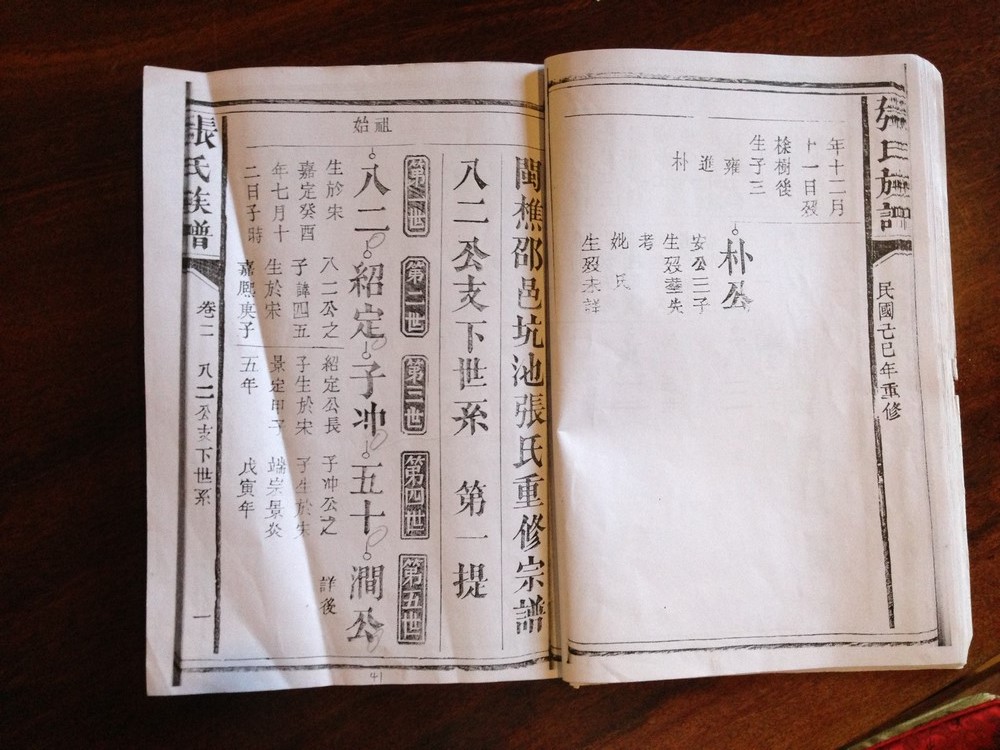 張氏族譜
民國己巳年重修
年十二月
十一日歿
樹後
生子三
雍
進
朴
朴公
安公三子
生歿葬失
考
妣氏
生歿未詳
閩樵邵邑坑池張氏重修宗譜
八二公支下世系 第一提
第一世 第二世 第三世 第四世 第五世
始祖
八二 紹定 子冲 五十 澗公
生於宋
嘉定癸酉
年七月十
二日子時
八二公之
子諱四五
生於宋
嘉熙庚子
紹定公長
子生於宋
景定甲子
五年
子冲公之
子生於宋
端宗景炎
戊寅年
詳後
張氏族譜
卷二 八二公支下世系 一
41